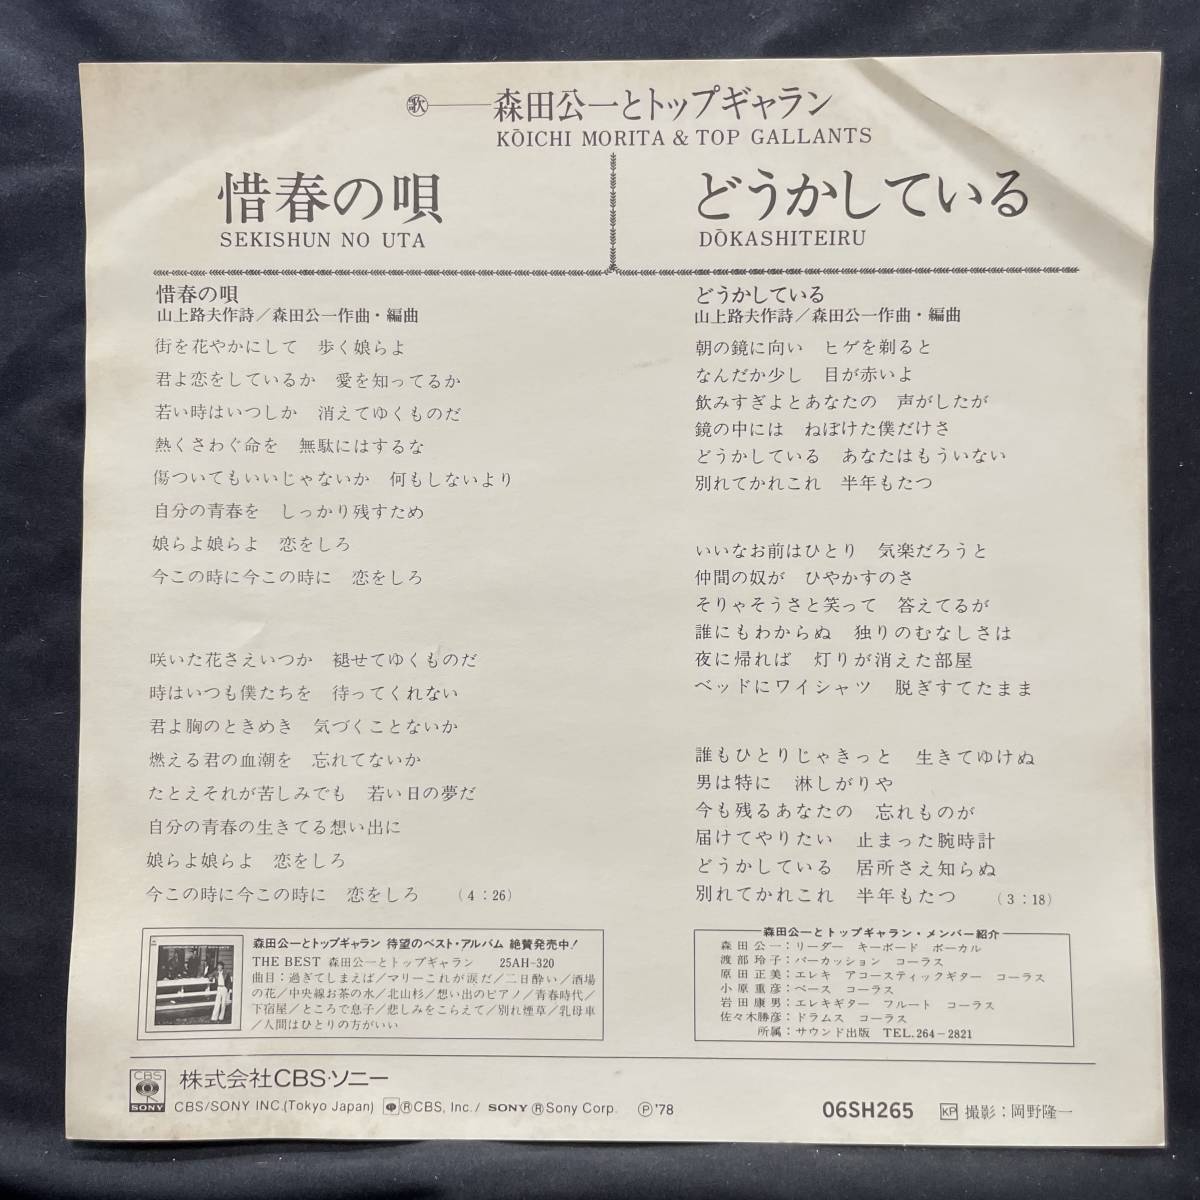 歌——森田公一とトップギャラン
KŌICHI MORITA & TOP GALLANTS
惜春の唄
SEKISHUN NO UTA
どうかしている
DŌKASHITEIRU
惜春の唄
山上路夫作詩／森田公一作曲・編曲
街を花やかにして　歩く娘らよ
君よ恋をしているか　愛を知ってるか
若い時はいつしか　消えてゆくものだ
熱くさわぐ命を　無駄にはするな
傷ついてもいいじゃないか　何もしないより
自分の青春を　しっかり残すため
娘らよ娘らよ　恋をしろ
今この時に今この時に　恋をしろ
咲いた花さえいつか　褪せてゆくものだ
時はいつも僕たちを　待ってくれない
君よ胸のときめき　気づくことないか
燃える君の血潮を　忘れてないか
たとえそれが苦しみでも　若い日の夢だ
自分の青春の生きてる想い出に
娘らよ娘らよ　恋をしろ
今この時に今この時に　恋をしろ　（4：26）
どうかしている
山上路夫作詩／森田公一作曲・編曲
朝の鏡に向い　ヒゲを剃ると
なんだか少し　目が赤いよ
飲みすぎよとあなたの　声がしたが
鏡の中には　ねぼけた僕だけさ
どうかしている　あなたはもういない
別れてかれこれ　半年もたつ
いいなお前はひとり　気楽だろうと
仲間の奴が　ひやかすのさ
そりゃそうさと笑って　答えてるが
誰にもわからぬ　独りのむなしさは
夜に帰れば　灯りが消えた部屋
ベッドにワイシャツ　脱ぎすてたまま
誰もひとりじゃきっと　生きてゆけぬ
男は特に　淋しがりや
今も残るあなたの　忘れものが
届けてやりたい　止まった腕時計
どうかしている　居所さえ知らぬ
別れてかれこれ　半年もたつ　（3：18）
森田公一とトップギャラン 待望のベスト・アルバム 絶賛発売中！
THE BEST 森田公一とトップギャラン　25AH-320
曲目：過ぎてしまえば／マリーこれが涙だ／二日酔い／酒場
の花／中央線お茶の水／北山杉／想い出のピアノ／青春時代／
下宿屋／ところで息子／悲しみをこらえて／別れ煙草／乳母車
／人間はひとりの方がいい
森田公一とトップギャラン・メンバー紹介
森田公一：リーダー　キーボード　ボーカル
渡部玲子：パーカッション　コーラス
原田正美：エレキ　アコースティックギター　コーラス
小原重彦：ベース　コーラス
岩田康男：エレキギター　フルート　コーラス
佐々木勝彦：ドラムス　コーラス
所属：サウンド出版　TEL.264-2821
CBS
SONY
株式会社CBS・ソニー
CBS/SONY INC.(Tokyo Japan) ⓇCBS, Inc./ SONY ⓇSony Corp. Ⓟ'78
06SH265
KP 撮影：岡野隆一